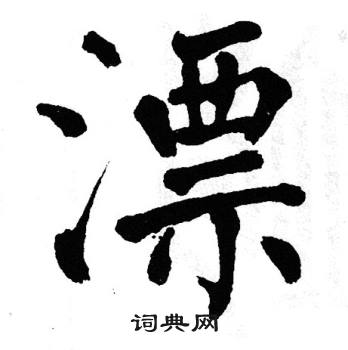 漂
词典网